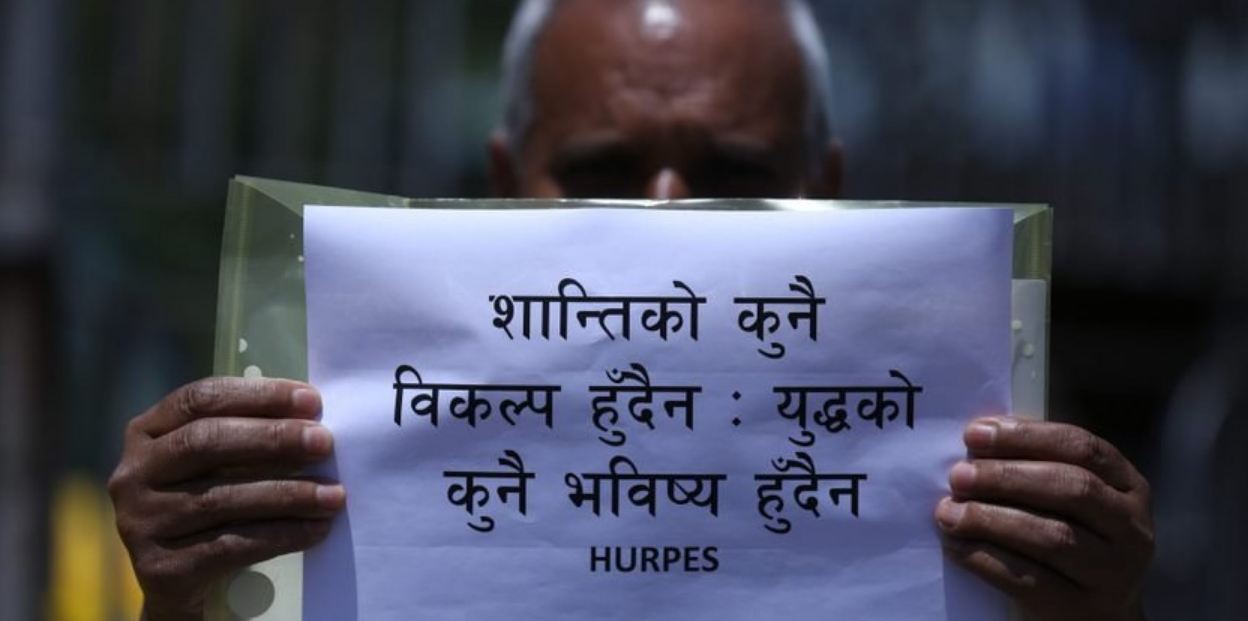 शान्तिको कुनै
विकल्प हुँदैन : युद्धको
कुनै भविष्य हुँदैन
HURPES